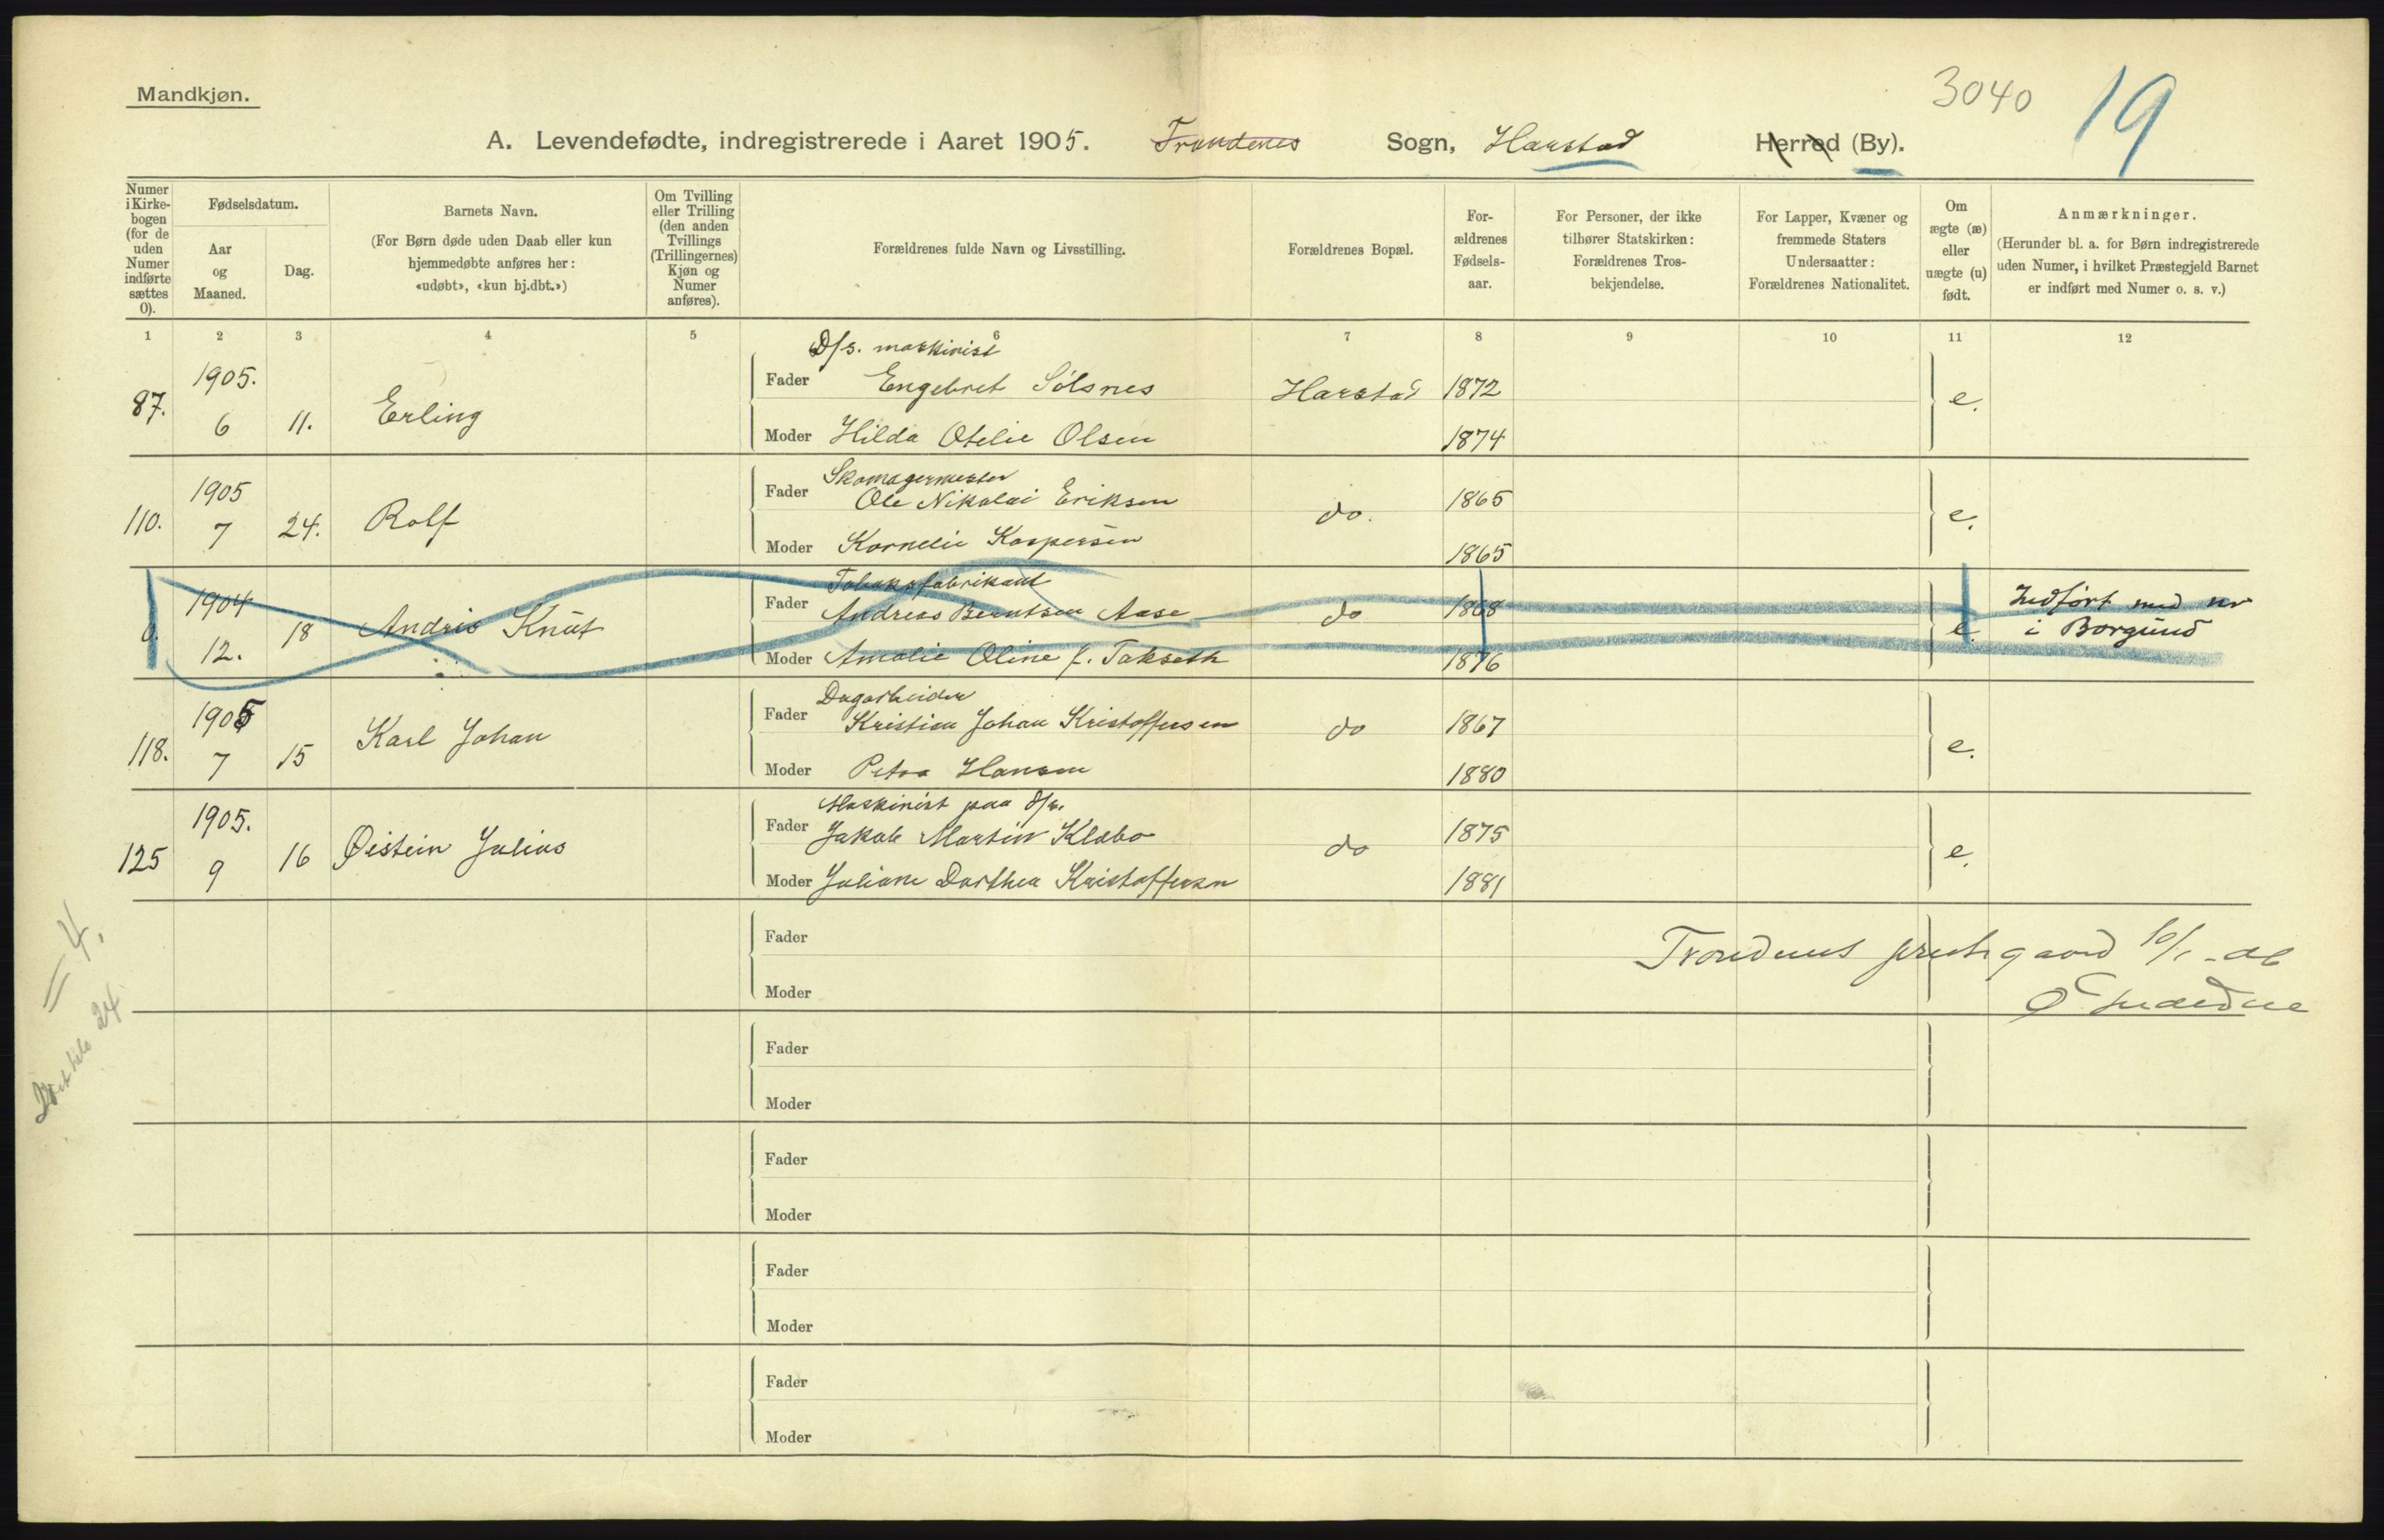 Mandkjøn.
3040 19
A. Levendefødte, indregistrerede i Aaret 1905. Trondenes Sogn, Harstad Herred (By).
Numer i Kirkebogen (for de uden Numer indførte sættes 0).
Fødselsdatum.
Aar og Maaned.
Dag.
Barnets Navn.
(For Børn døde uden Daab eller kun hjemmedøbte anføres her: «udøbt», «kun hj.dbt.»)
Om Tvilling eller Trilling (den anden Tvillings (Trillingernes) Kjøn og Numer anføres).
Forældrenes fulde Navn og Livsstilling.
Forældrenes Bopæl.
Forældrenes Fødselsaar.
For Personer, der ikke tilhører Statskirken: Forældrenes Trosbekjendelse.
For Lapper, Kvæner og fremmede Staters Undersaatter: Forældrenes Nationalitet.
Om ægte (æ) eller uægte (u) født.
Anmærkninger.
(Herunder bl. a. for Børn indregistrerede uden Numer, i hvilket Præstegjeld Barnet er indført med Numer o. s. v.)
1 2 3 4 5 6 7 8 9 10 11 12
D/s. maskinist
87. 1905. 6 11. Erling Fader Engebret Sölsnes Harstad 1872 e.
Moder Hilda Otelie Olsen 1874
Skomagermester
110. 1905 7 24. Rolf Fader Ole Nikolai Eriksen do. 1865 e.
Moder Kornelie Kaspersen 1865
Tobaksfabrikant
0. 1904 12. 18 Andris Knut Fader Andreas Berntsen Aase do 1868 e. Indført med nr
i Borgund
Moder Amalie Oline f. Takseth 1876
Dagarbeider
118. 1905 7 15 Karl Johan Fader Kristian Johan Kristoffersen do 1867 e.
Moder Petra Hansen 1880
Maskinist paa d/s.
125 1905. 9 16 Øistein Julius Fader Jakob Martin Klæbo do 1875 e.
Moder Juliane Dorthea Kristoffersen 1881
= 4.
24
Fader
Trondenes prestegaard 10/1 - 06
Moder
Fader
Moder
Fader
Moder
Fader
Moder
Fader
Moder